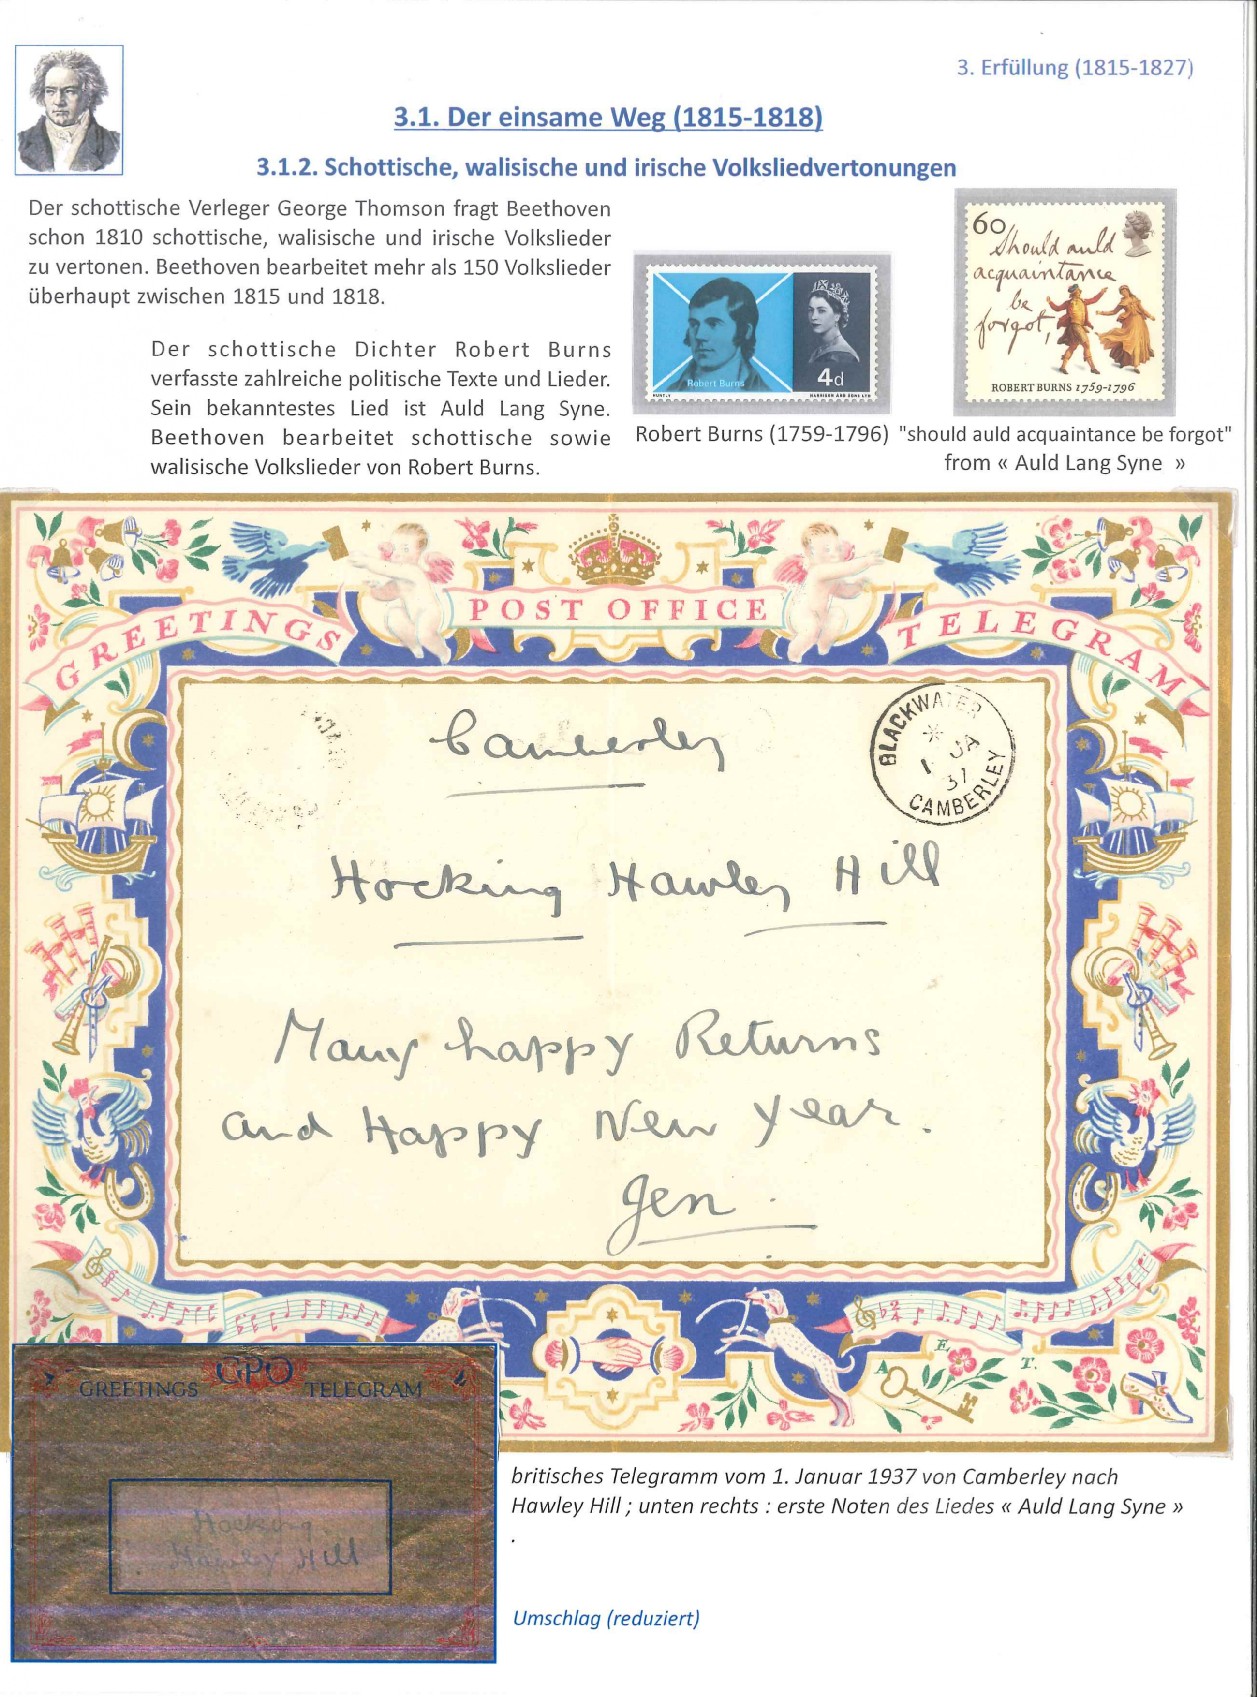 3. Erfüllung (1815-1827)
3.1. Der einsame Weg (1815-1818)
3.1.2. Schottische, walisische und irische Volksliedvertonungen
Der schottische Verleger George Thomson fragt Beethoven
schon 1810 schottische, walisische und irische Volkslieder
zu vertonen. Beethoven bearbeitet mehr als 150 Volkslieder
überhaupt zwischen 1815 und 1818.
Der schottische Dichter Robert Burns
verfasste zahlreiche politische Texte und Lieder.
Sein bekanntestes Lied ist Auld Lang Syne.
Beethoven bearbeitet schottische sowie
walisische Volkslieder von Robert Burns.
Robert Burns
4d
HARRISON AND SONS LTD
Robert Burns (1759-1796)
60
Should auld
acquaintance
be
forgot,
ROBERT BURNS 1759-1796
"should auld acquaintance be forgot"
from « Auld Lang Syne »
GREETINGS POST OFFICE TELEGRAM
Camberley
BLACKWATER
1 JA
37
CAMBERLEY
Hocking Hawley Hill
Many happy Returns
and Happy New Year.
Jen.
A E. T.
GPO
GREETINGS TELEGRAM
Hocking
Hawley Hill
britisches Telegramm vom 1. Januar 1937 von Camberley nach
Hawley Hill ; unten rechts : erste Noten des Liedes « Auld Lang Syne »
.
Umschlag (reduziert)